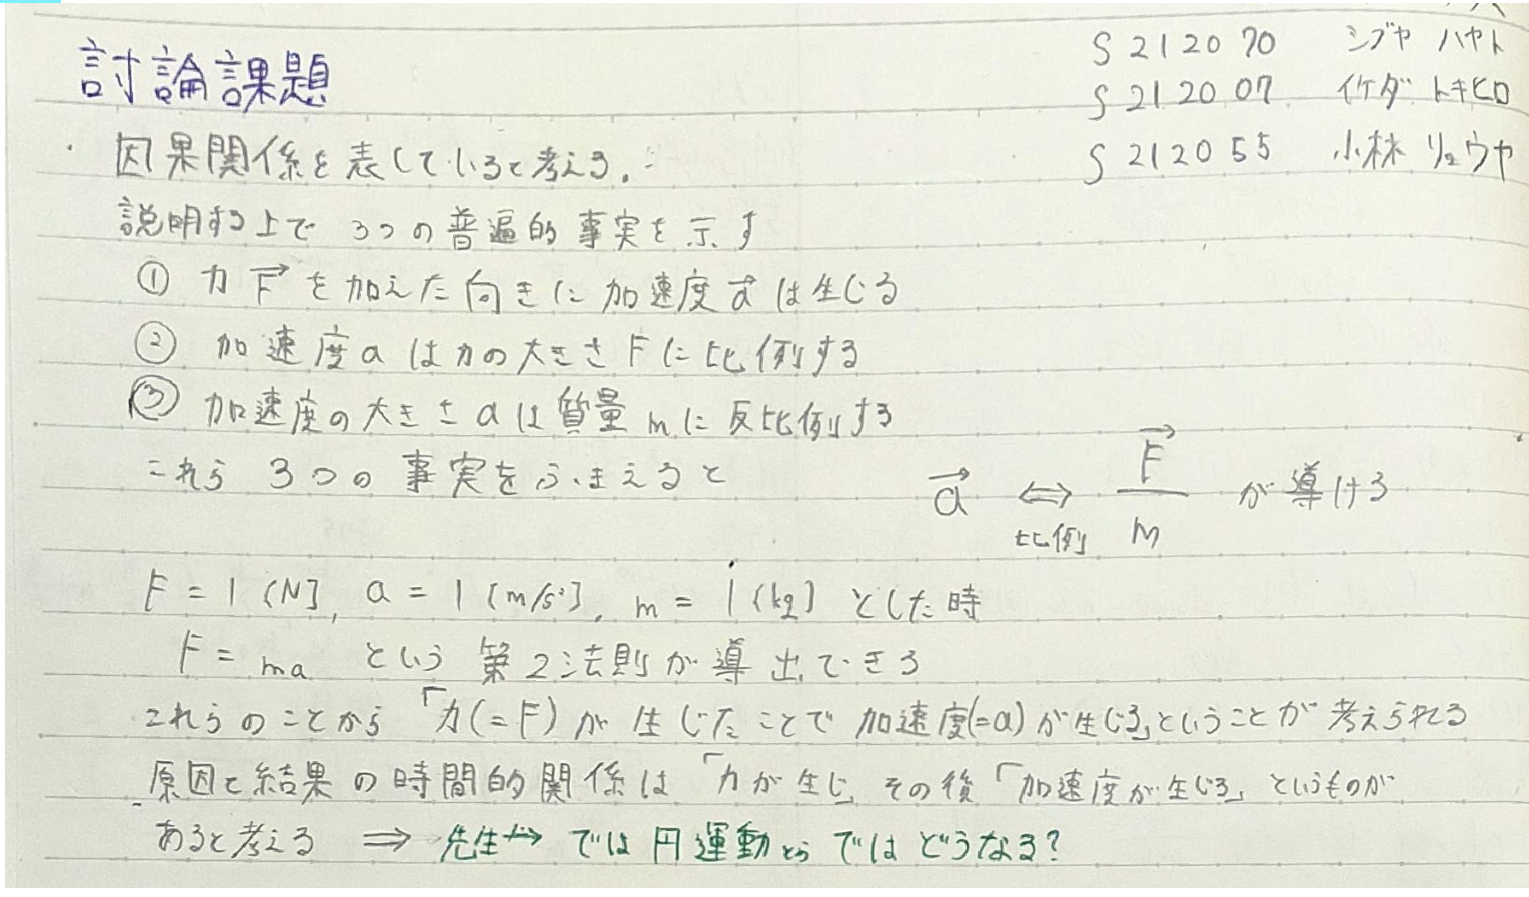 討論課題
S212070 シブヤ ハヤト
S212007 イケダ トキヒロ
S212055 小林 リュウヤ
・因果関係を表していると考える。
説明する上で 3つの普遍的事実を示す
① 力F→を加えた向きに加速度a→は生じる
② 加速度aは力の大きさFに比例する
③ 加速度の大きさaは質量mに反比例する
これら3つの事実をふまえると a→ ⇔ F→/m が導ける
比例
F = 1 [N], a = 1 [m/s²], m = 1 [kg] とした時
F = ma という第2法則が導出できる
これらのことから「力(=F)が生じたことで加速度(=a)が生じる」ということが考えられる
原因と結果の時間的関係は「力が生じ」その後「加速度が生じる」というものが
あると考える ⇒ 先生 では円運動 ではどうなる?